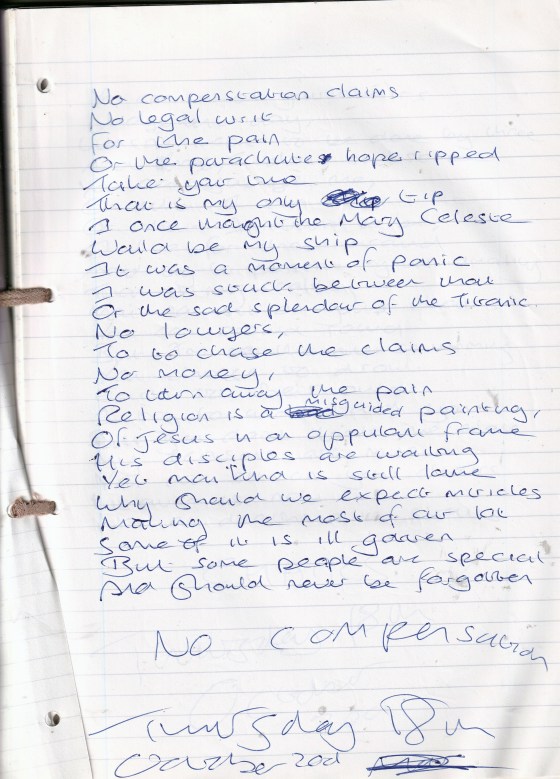 No compenstation claims
No legal writ
For the pain
Or the parachutes hope ripped
Take your time
That is my only tip
I once thought the Mary Celeste
Would be my ship
It was a moment of panic
I was stuck between that
Or the sad splendour of the Titanic.
No lawyers,
To to chase the claims
No money,
To turn away the pain
Religion is a misguided painting,
Of Jesus in an oppulant frame
His disciples are waiting
Yet mankind is still lame
Why should we expect miricles
Making the most of our lot
Some of it is ill gotten
But some people are special
And should never be forgotten
No compensation
Thursday 18th
October 2012